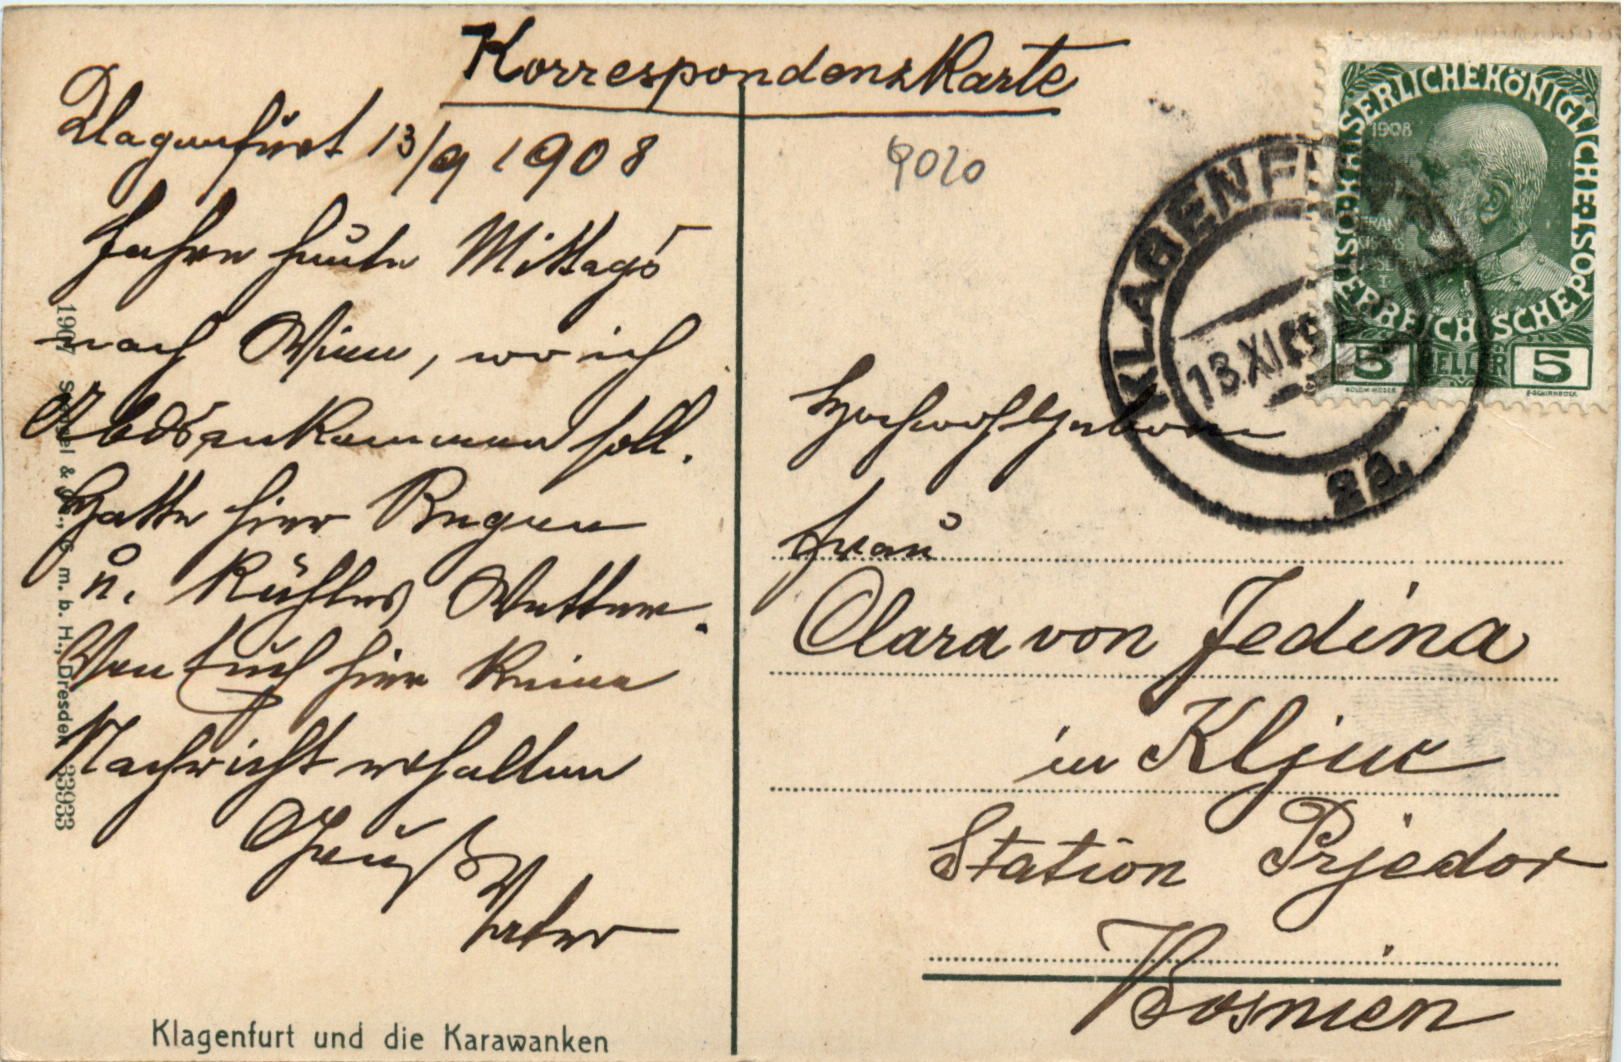 Korrespondenzkarte
Klagenfurt 13/9 1908
Fahre heute Mittags
nach Wien, wo ich
Abds ankommen soll.
Hatte hier Regen
u. kühles Wetter.
Von Euch hier keine
Nachricht erhalten
Gruß
Vater
9020
Hochwohlgeboren
Frau
Clara von Jedina
in Kljuc
Station Prjedor
Bosnien
KAISERLICHEKÖNIGLICHE ÖSTERREICHISCHE POST
1908
5 HELLER 5
KLAGENFURT 1
13.XI.09
2a.
1907 & G. m. b. H., Dresden 33933
Klagenfurt und die Karawanken